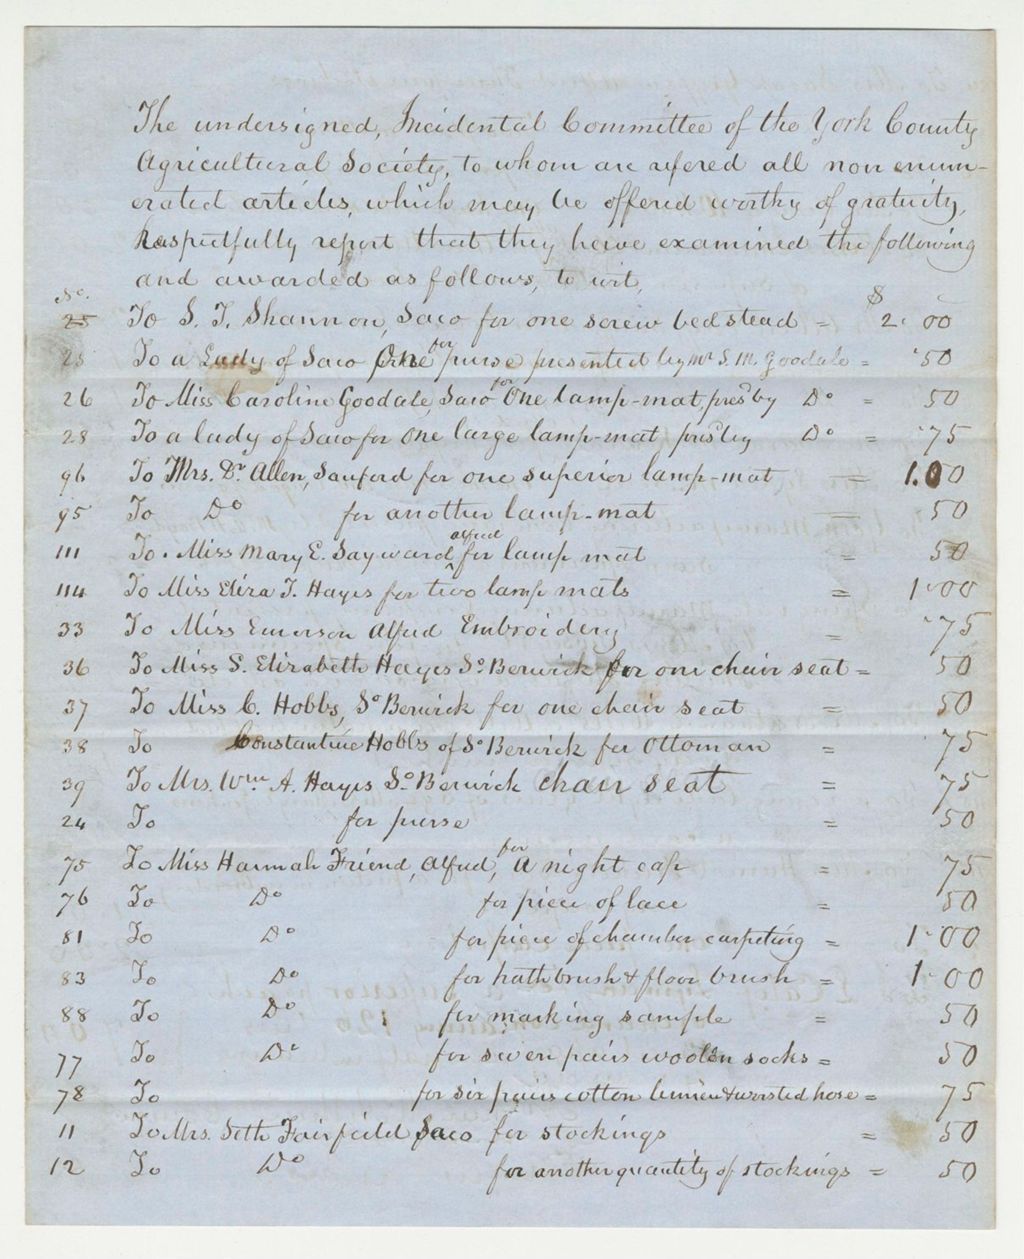 The undersigned, Incidental Committee of the York County
Agricultural Society, to whom are refered all non enum-
erated articles, which may be offered worthy of gratuity,
Respectfully report that they have examined the following
and awarded as follows, to wit,
No. $
25 To S. T. Shannon, Saco for one screw bedstead = 2.00
25 To a Lady of Saco for One purse presented by Mr S. M. Goodale = .50
26 To Miss Caroline Goodale, Saco for One lamp-mat, pres'd by Do = 50
28 To a lady of Saco for one large lamp-mat pres'd by Do = .75
96 To Mrs. Dr Allen, Sanford for one superior lamp-mat = 1.00
95 To Do for another lamp-mat = 50
111 To. Miss Mary E. Sayward Alfred for lamp mat = 50
114 To Miss Eliza T. Hayes for two lamp mats = 1.00
33 To Miss Emerson Alfred Embroidery = .75
36 To Miss S. Elizabeth Hayes So Berwick for one chair seat = 50
37 To Miss C. Hobbs, So Berwick for one chair seat = 50
38 To Constantine Hobbs of So Berwick for Ottoman = 75
39 To Mrs. Wm A. Hayes So Berwick chair seat = 75
24 To for purse = 50
75 To Miss Hannah Friend, Alfred, for A night cap = 75
76 To Do for piece of lace = 50
81 To Do for piece of chamber carpeting = 1.00
83 To Do for hath brush & floor brush = 1.00
88 To Do for marking sample = 50
77 To Do for seven pairs woolen socks = 50
78 To for six pairs cotton linnen & worsted hose = 75
11 To Mrs. Seth Fairfield Saco for stockings = 50
12 To Do for another quantity of stockings = 50